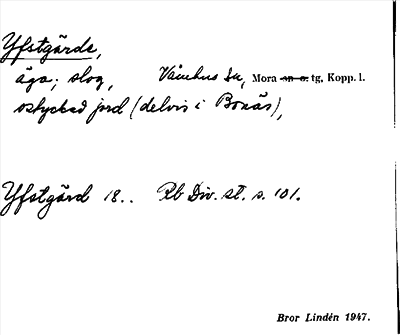 Yfstgärde,
äga; slog, Våmhus sn, Mora sn o. tg, Kopp. l.
oskyckad jord (delvis i Bonäs),
Yfstgärd 18.. Rb Div. st. s. 101.
Bror Lindén 1947.